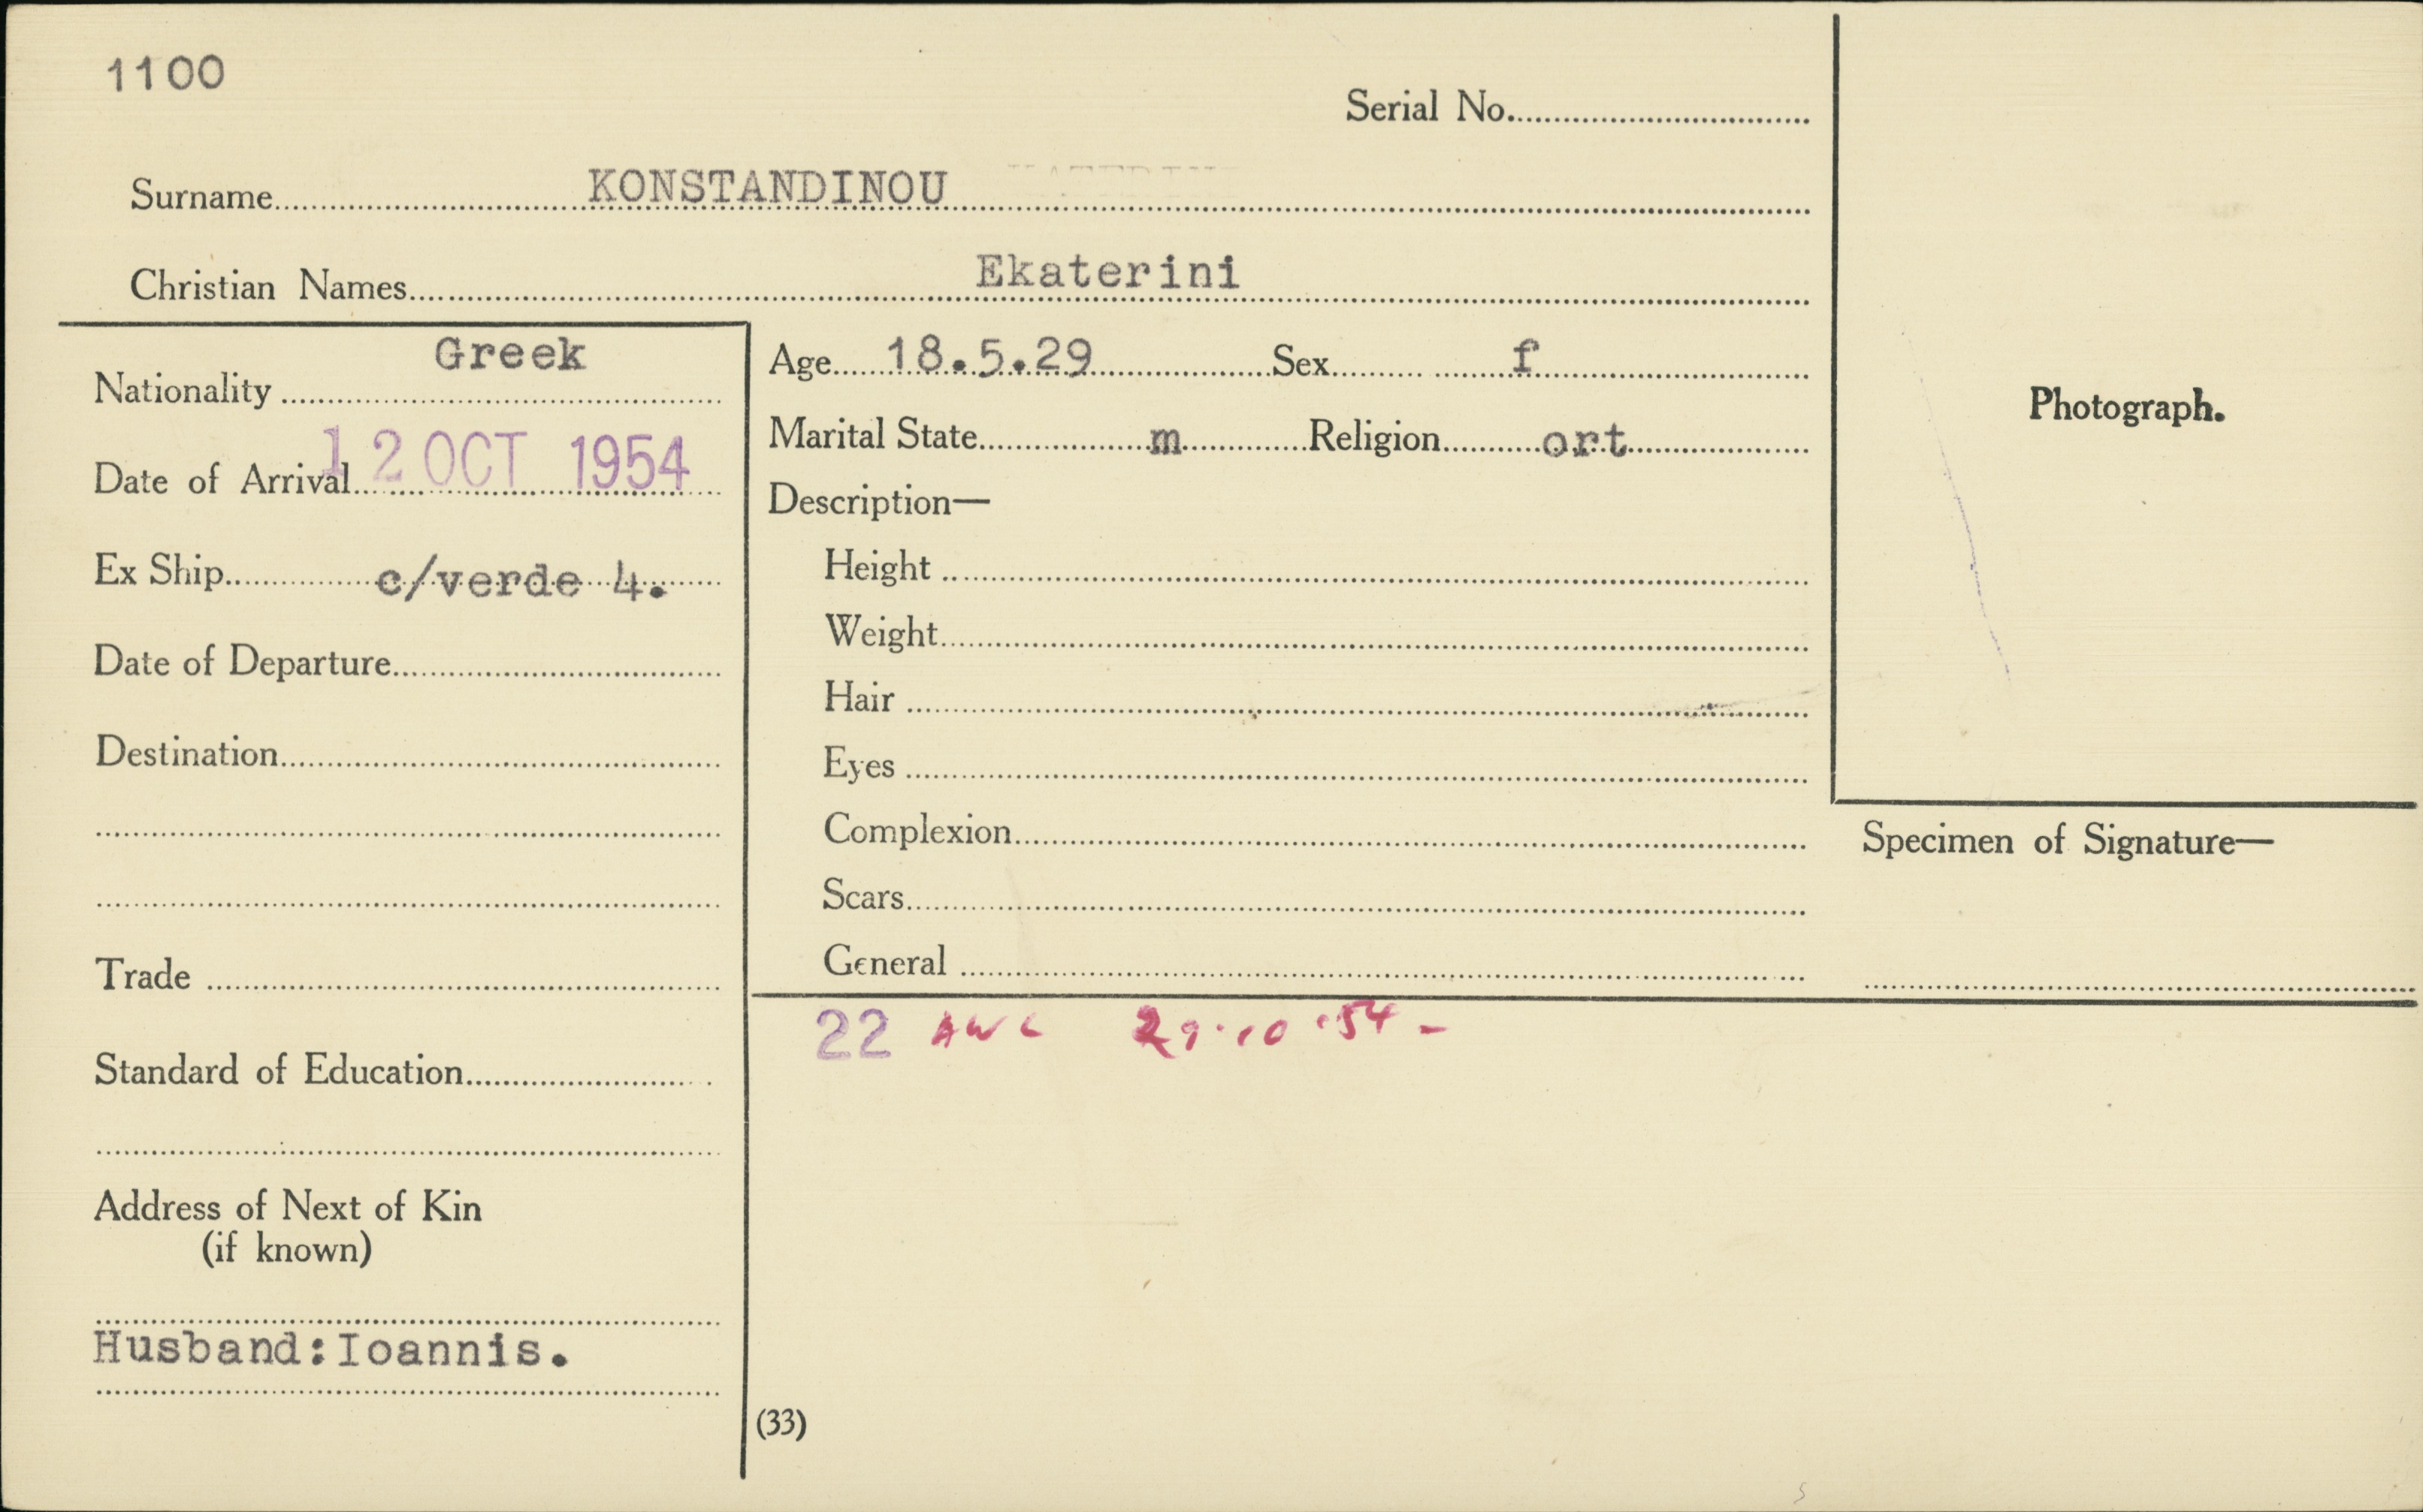 1100
Serial No.
Surname KONSTANDINOU
Christian Names Ekaterini
Nationality Greek
Date of Arrival 12 OCT 1954
Ex Ship c/verde 4.
Date of Departure
Destination
Trade
Standard of Education
Address of Next of Kin
(if known)
Husband:Ioannis.
Age 18.5.29 Sex f
Marital State m Religion ort
Description—
Height
Weight
Hair
Eyes
Complexion
Scars
General
22 AWL 29.10.54 -
(33)
Photograph.
Specimen of Signature—